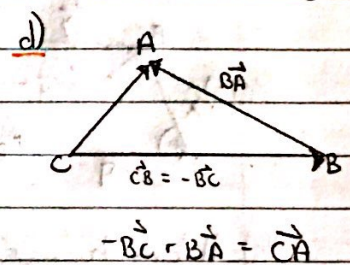 d)
A
BA⃗
C
B
CB⃗ = -BC⃗
-BC⃗ - BA⃗ = CA⃗